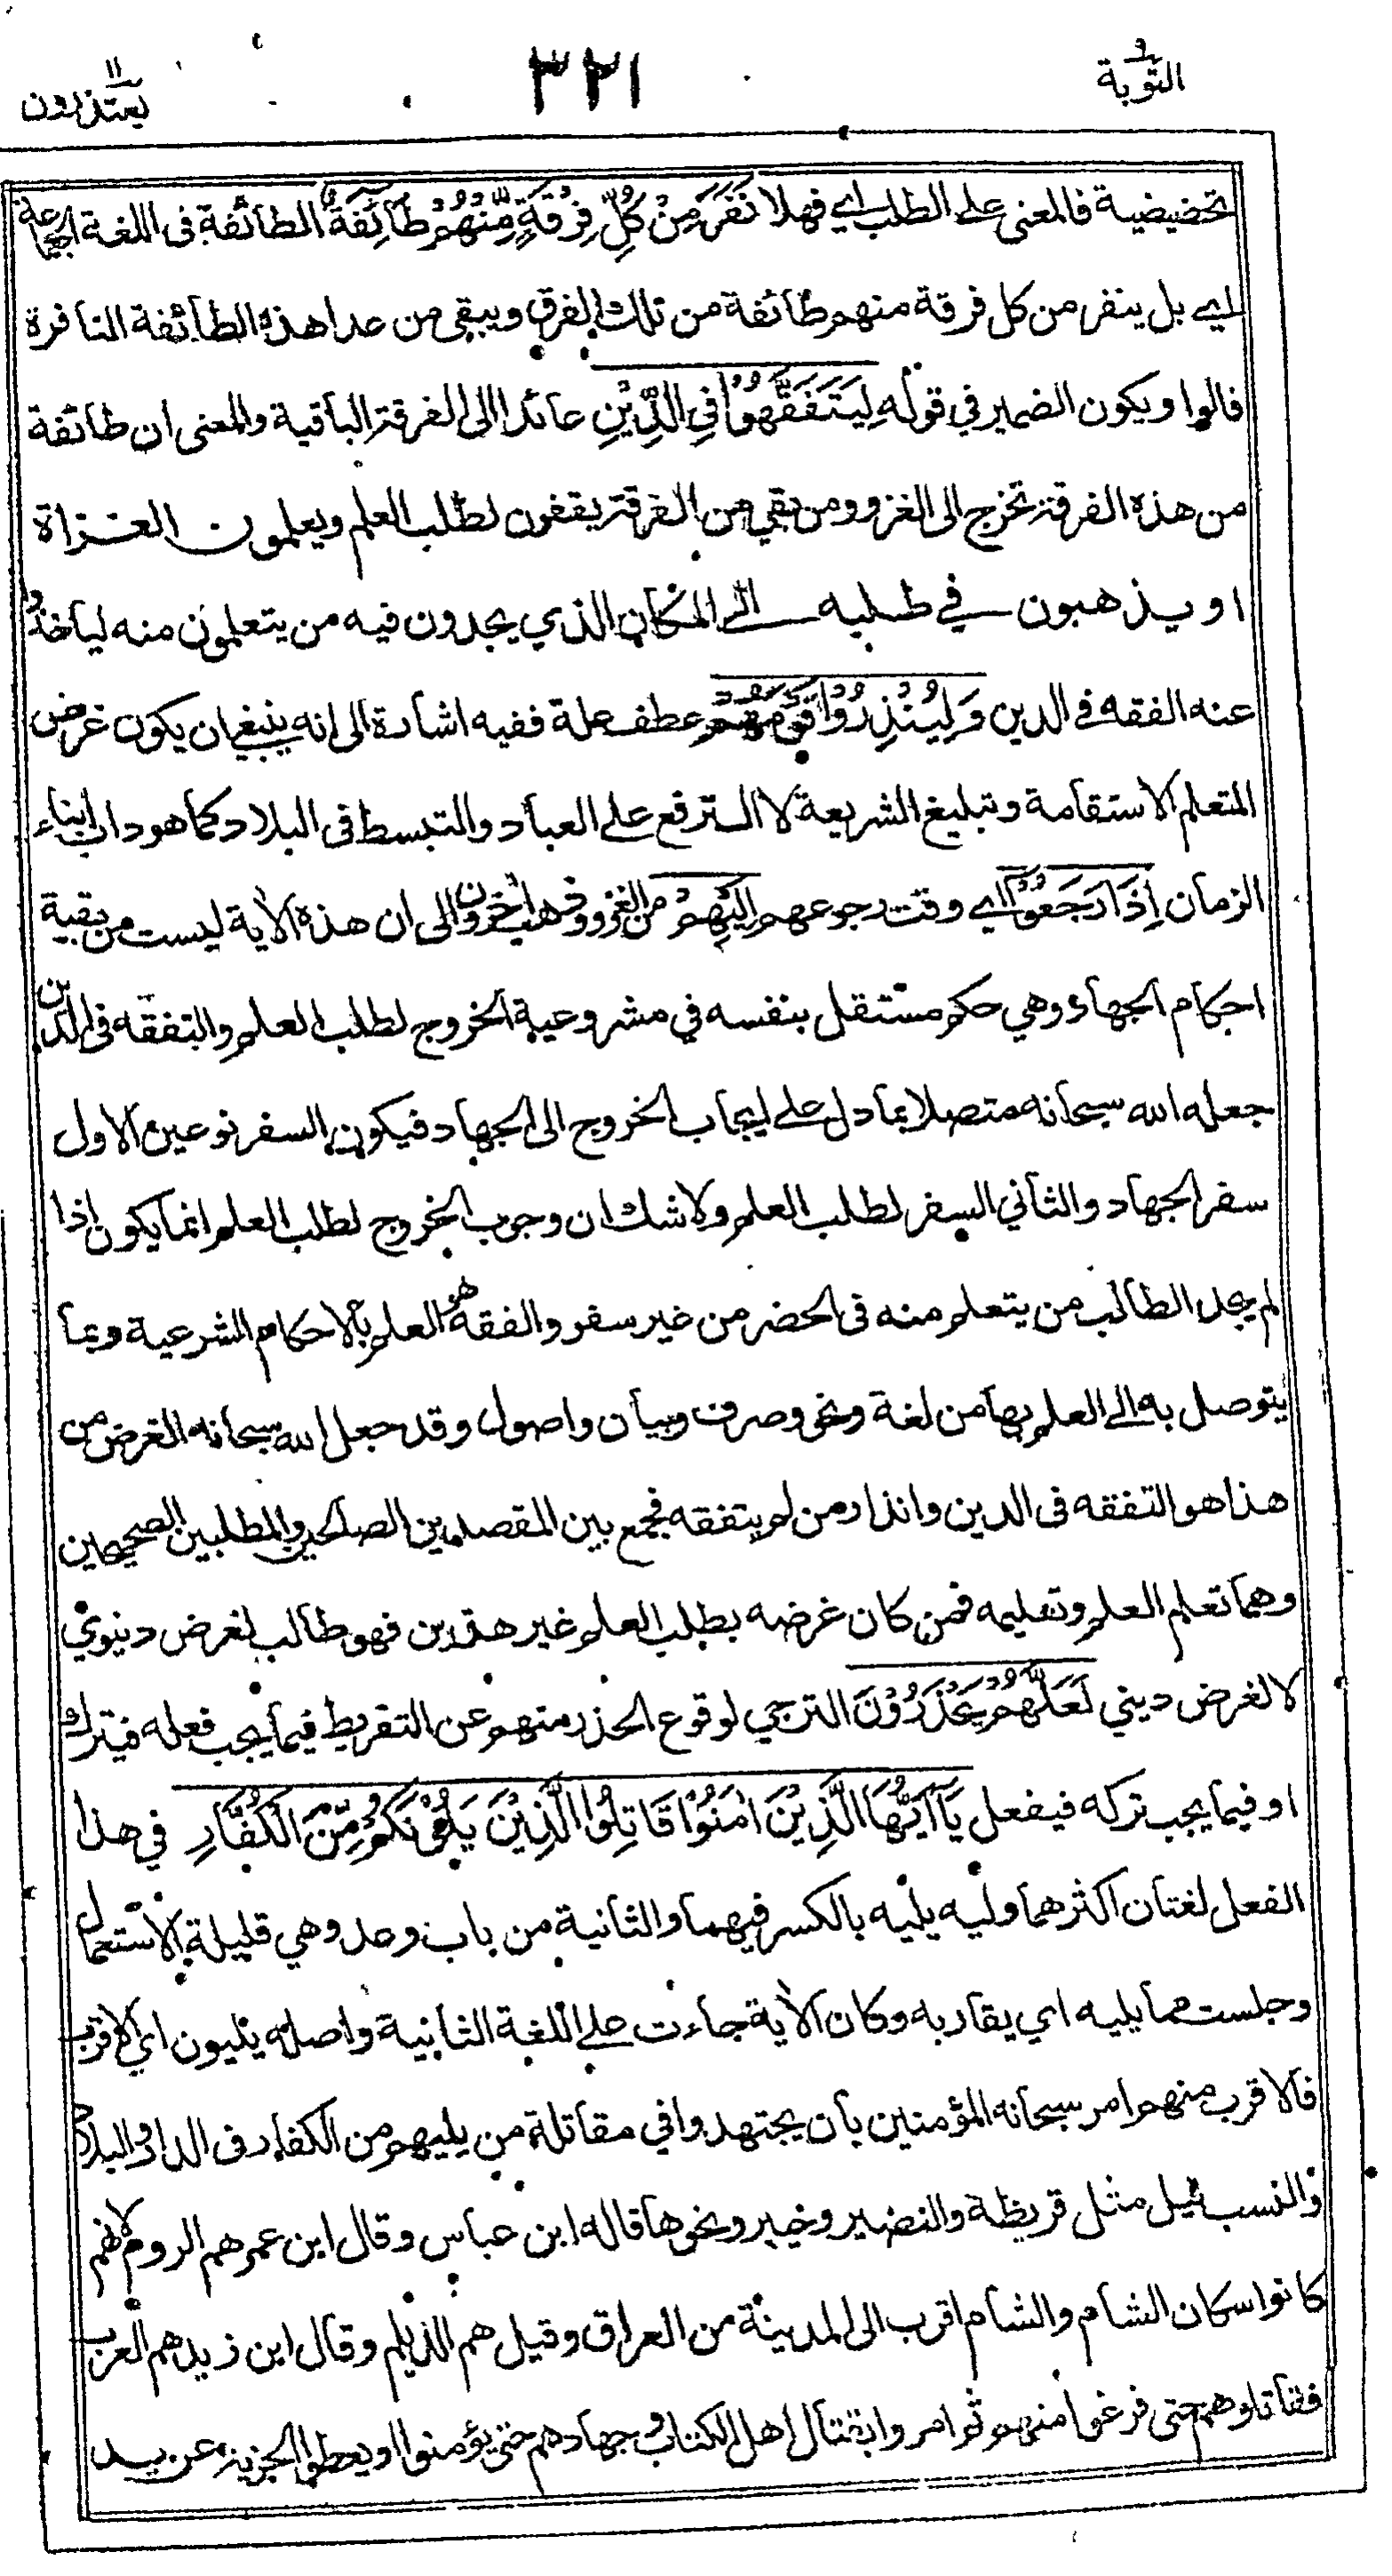 التوبة ٩
٣٢١
يعتذرون ١١
تحضيضية فالمعنى على الطلب اي فهلا نَفَرَ مِنْ كُلِّ فِرْقَةٍ مِّنْهُمْ طَآئِفَةٌ الطائفة فى اللغة الجماعة
اي بل ينفر من كل فرقة منهم طائفة من تلك الفرق ويبقى من عدا هذه الطائفة النافرة
قالوا ويكون الضمير في قوله لِيَتَفَقَّهُوْا فِي الدِّيْنِ عائدا الى الفرقة الباقية والمعنى ان طائفة
من هذه الفرقة تخرج الى الغزو ومن بقي من الفرقة يقفون لطلب العلم ويعلمون الغزاة
او يذهبون في طلبه الى المكان الذي يجدون فيه من يتعلمون منه لياخذوا
عنه الفقه في الدين وَلِيُنْذِرُوْا قَوْمَهُمْ عطف علة ففيه اشارة الى انه ينبغي ان يكون غرض
المتعلم الاستقامة وتبليغ الشريعة لا الترفع على العباد والتبسط فى البلاد كما هو داب ابناء
الزمان اِذَا رَجَعُوْٓا اي وقت رجوعهم اِلَيْهِمْ من الغزو وذهب اخرون الى ان هذه الاية ليست من بقية
احكام الجهاد وهي حكم مستقل بنفسه في مشروعية الخروج لطلب العلم والتفقه فى الدين
جعله الله سبحانه متصلا بما دل على ايجاب الخروج الى الجهاد فيكون السفر نوعين الاول
سفر الجهاد والثاني السفر لطلب العلم ولا شك ان وجوب الخروج لطلب العلم انما يكون اذا
لم يجد الطالب من يتعلم منه فى الحضر من غير سفر والفقه هو العلم بالاحكام الشرعية وبما
يتوصل به الى العلم بها من لغة ونحو وصرف وبيان واصول وقد جعل الله سبحانه الغرض من
هذا هو التفقه فى الدين وانذار من لم يتفقه فجمع بين المقصدين الصالحين والمطلبين الصحيحين
وهما تعلم العلم وتعليمه فمن كان غرضه بطلب العلم غير هذين فهو طالب لغرض دنيوي
لا لغرض ديني لَعَلَّهُمْ يَحْذَرُوْنَ الترجي لوقوع الحذر منهم عن التفريط فيما يجب فعله فيترك
او فيما يجب تركه فيفعل يَآ اَيُّهَا الَّذِيْنَ اٰمَنُوْا قَاتِلُوا الَّذِيْنَ يَلُوْنَكُمْ مِّنَ الْكُفَّارِ في هذا
الفعل لغتان اكثرهما وليه يليه بالكسر فيهما والثانية من باب وعد وهي قليلة الاستعمال
وجلست مما يليه اي يقاربه وكان الاية جاءت على اللغة الثانية واصله يليون اي الاقرب
فالاقرب منهم امر سبحانه المؤمنين بان يجتهدوا في مقاتلة من يليهم من الكفار فى الدار والبلاد
والنسب قيل مثل قريظة والنضير وخيبر ونحوها قاله ابن عباس وقال ابن عمر هم الروم لانهم
كانوا سكان الشام والشام اقرب الى المدينة من العراق وقيل هم الديلم وقال ابن زيد هم العرب
فقاتلوهم حتى فرغوا منهم ثم امروا بقتال اهل الكتاب وجهادهم حتى يؤمنوا او يعطوا الجزية عن يد